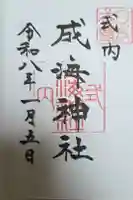 式内
成海神社
令和八年一月五日